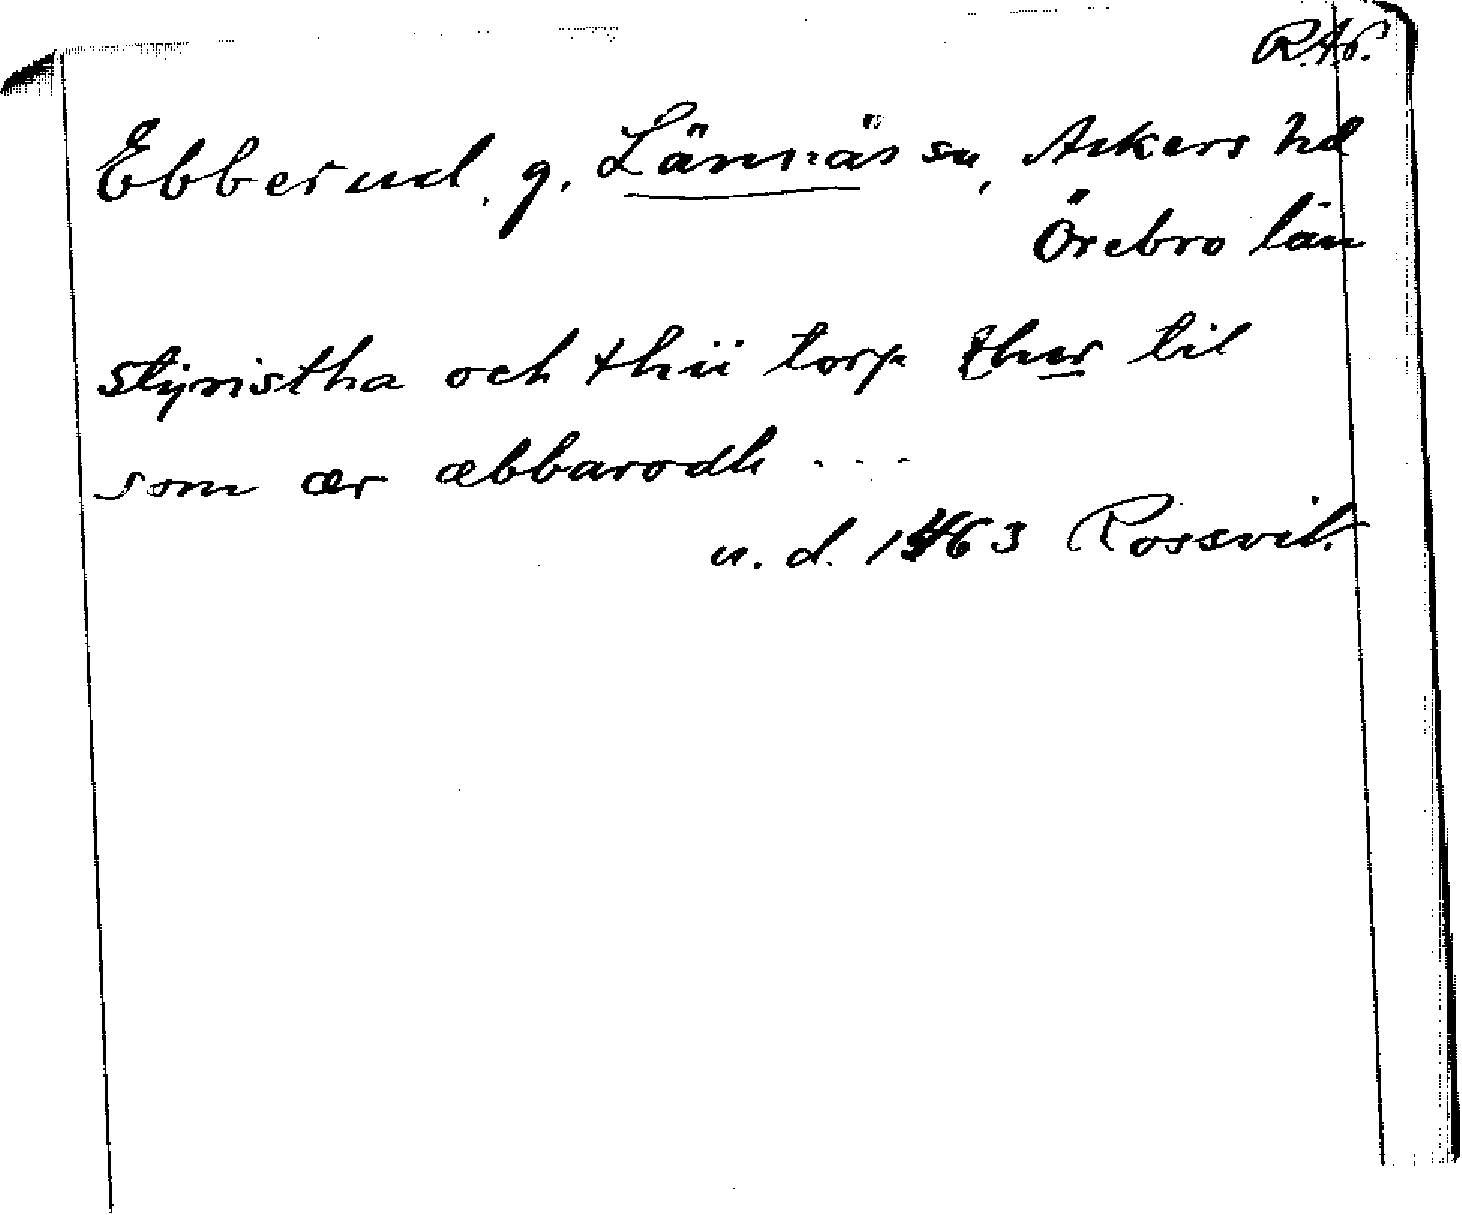 R.A.P.
Ebberud, g. Lännäs sn, Askers hd
Örebro län
styristha och thii torp ther til
som ær æbbarodh ...
u. d. 1463 Rossvik.